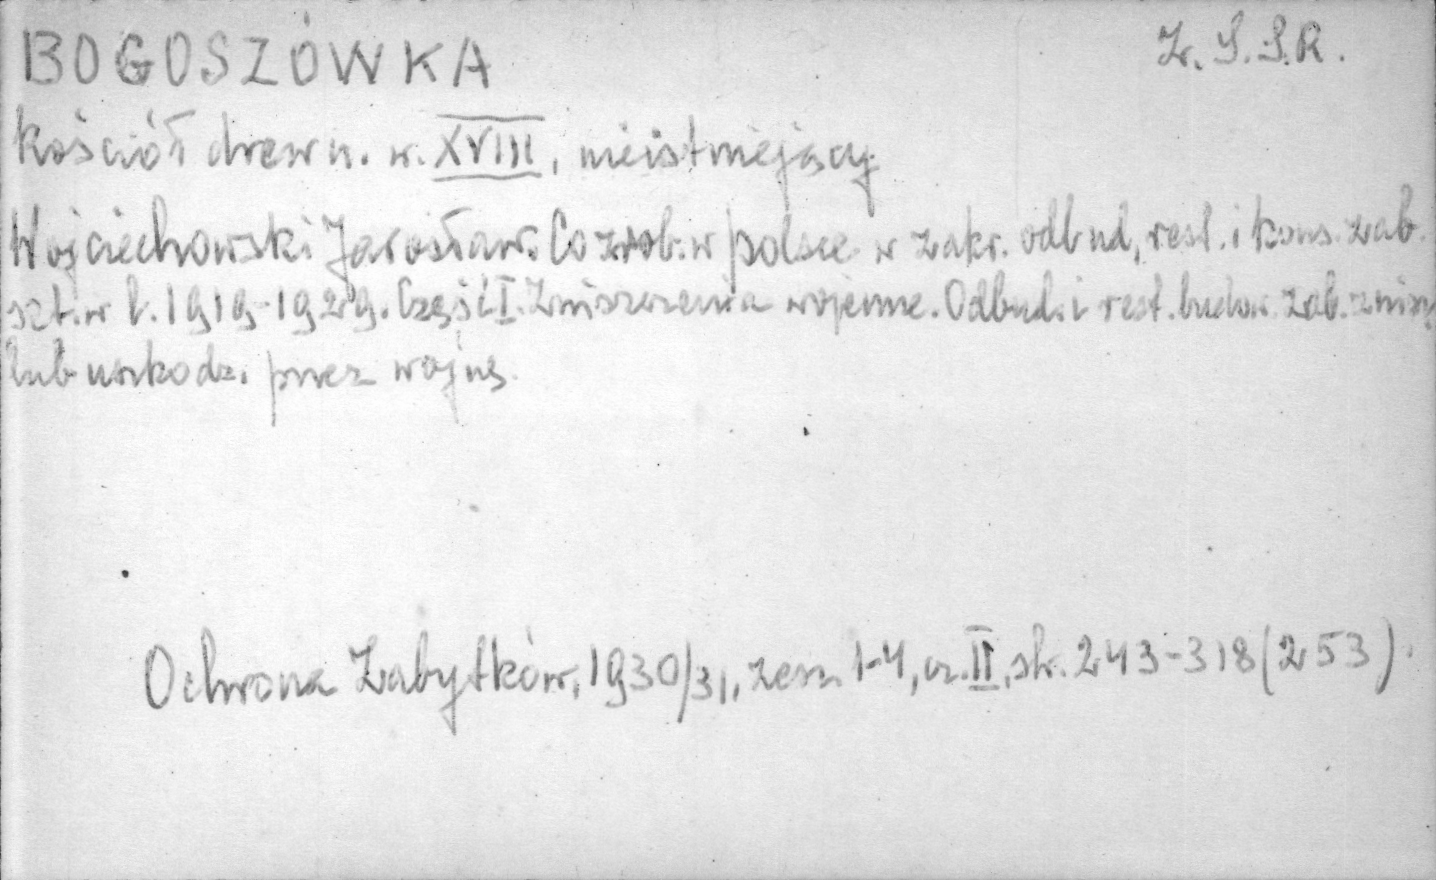 BOGOSZÓWKA Z.S.S.R.
Kościół drewn. w. XVIII, nieistniejący
Wojciechowski Jarosław. Co zrob. w polsce w zakr. odbud, rest. i kons. zab.
szt. w l. 1919-1929. Część I. Zniszczenia wojenne. Odbud. i rest. budow. zab. zniszcz
lub uszkodz. przez wojnę.
Ochrona Zabytków, 1930/31, zesz. 1-4, cz. II, str. 243-318 (253).